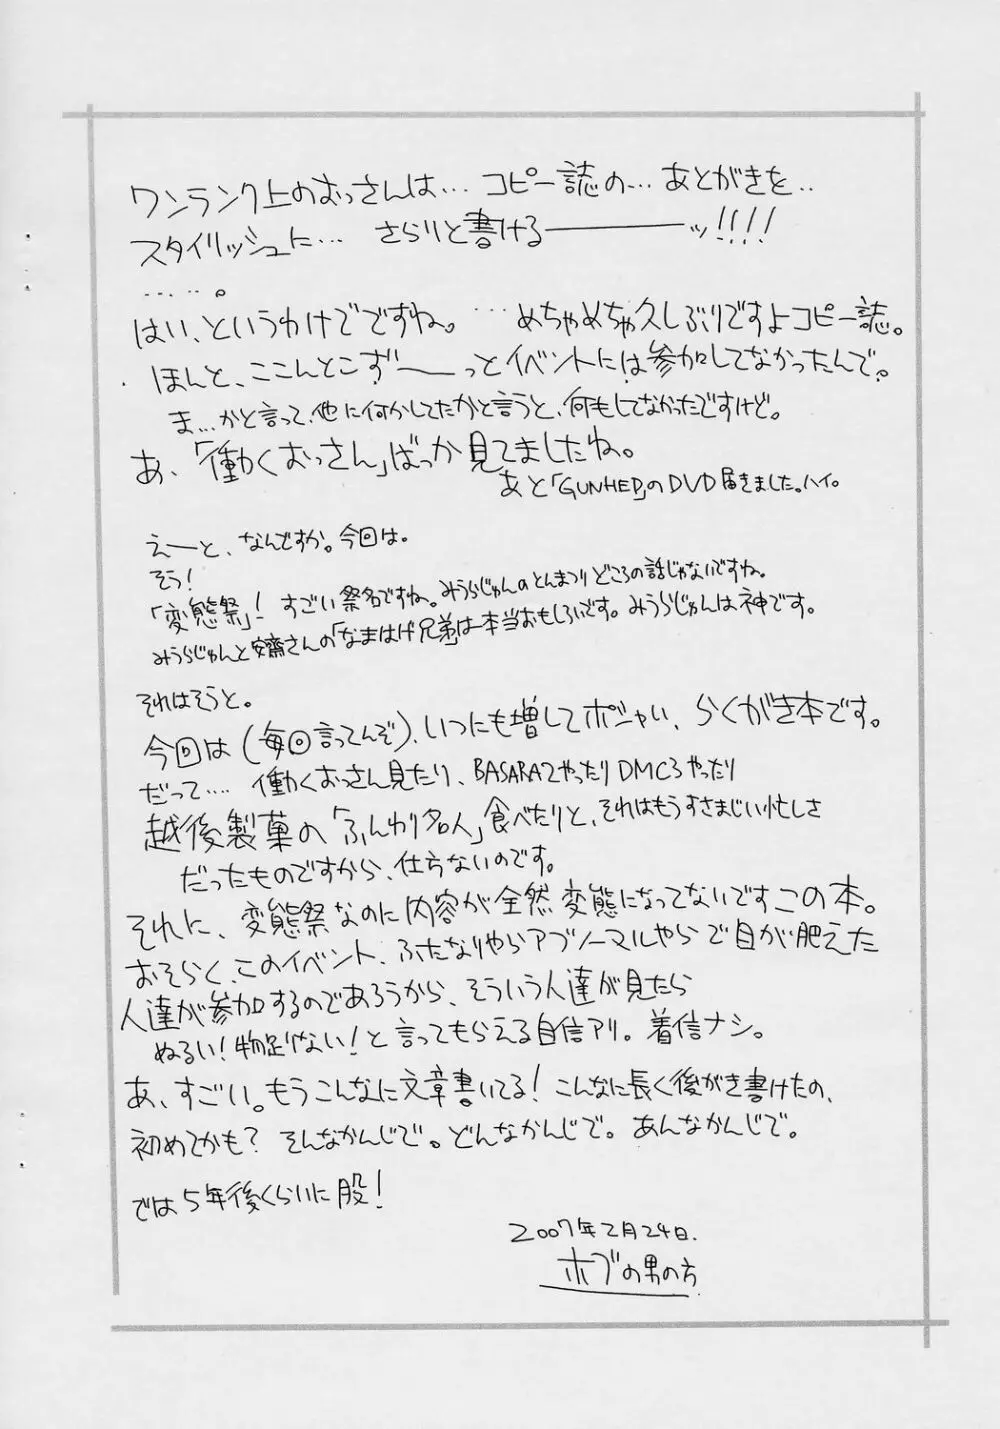 ワンランク上のおっさんは… コピー誌の… あとがきを‥
スタイリッシュに… さらりと書ける────ッ!!!!
……。
はい、というわけでですね。…めちゃめちゃ久しぶりですよコピー誌。
ほんと、ここんとこず──っとイベントには参加してなかったんで。
ま…かと言って、他に何かしてたかと言うと、何もしてなかったですけど。
あ、「働くおっさん」ばっか見てましたね。
あと「GUNHED」のDVD届きました。ハイ。
えーと、なんですか。今回は。
そう!
「変態祭」! すごい祭名ですね。みうらじゅんのとんまつりどころの話じゃないですね。
みうらじゅんと安齋さんの「なまはげ兄弟」は本当おもしろいです。みうらじゅんは神です。
それはそうと。
今回は(毎回言ってんぞ)、いつにも増してポシャい、らくがき本です。
だって…. 働くおっさん見たり、BASARA2やったりDMC3やったり
越後製菓の「ふんわり名人」食べたりと、それはもうすさまじい忙しさ
だったものですから、仕方ないのです。
それに、変態祭なのに内容が全然変態になってないですこの本。
おそらく、このイベント、ふたなりやらアブノーマルやらで目が肥えた
人達が参加するのであろうから、そういう人達が見たら
ぬるい!物足りない!と言ってもらえる自信アリ。着信ナシ。
あ、すごい。もうこんなに文章書いてる!こんなに長く後がき書けたの、
初めてかも? そんなかんじで。どんなかんじで。あんなかんじで。
では5年後くらいに股!
2007年2月24日.
ホブの男の方